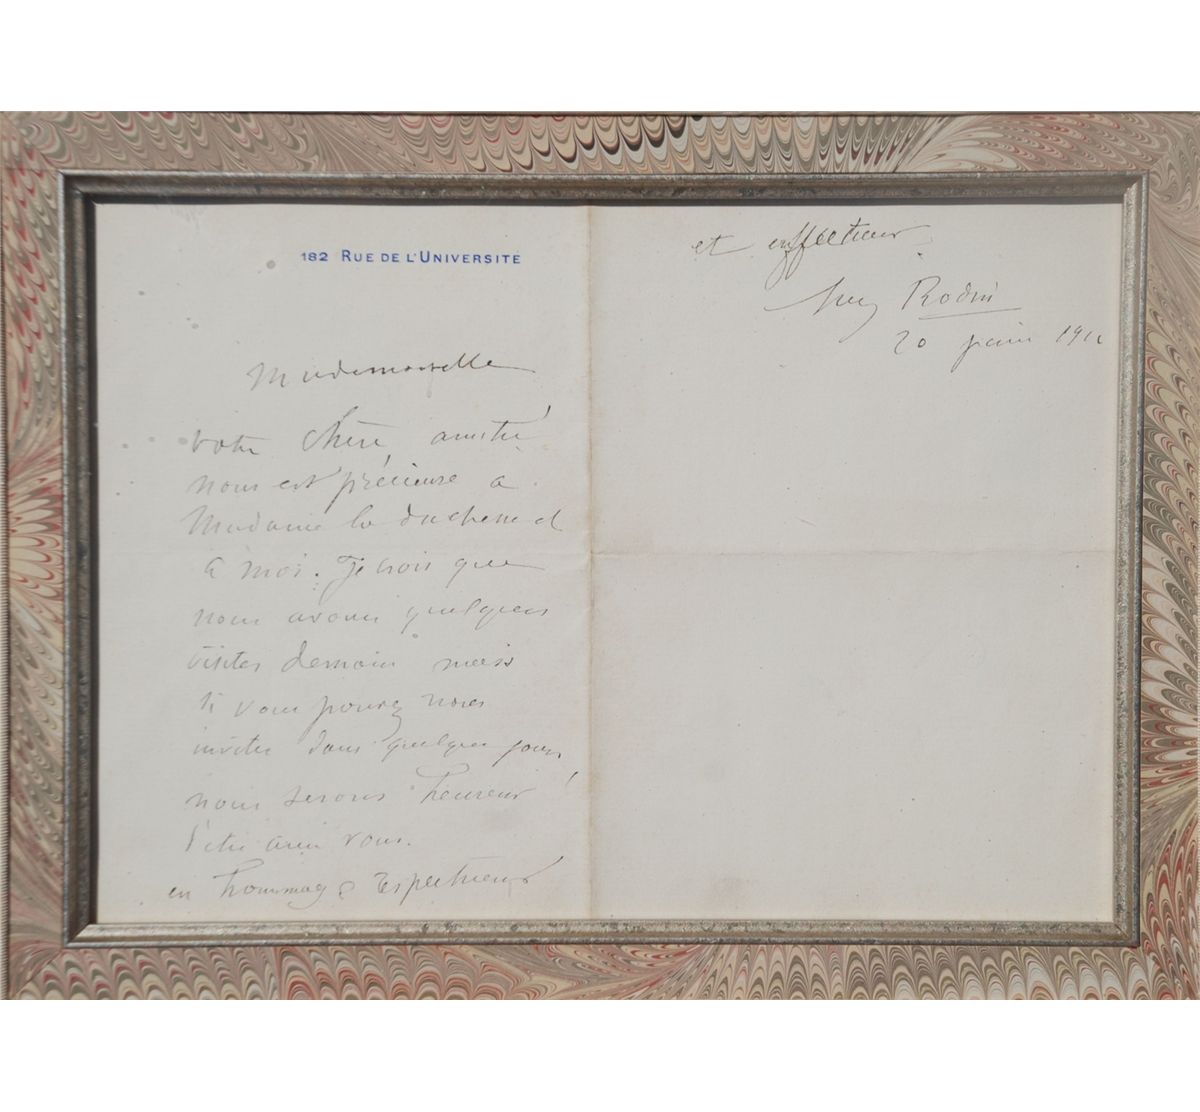 182 RUE DE L'UNIVERSITE
Mademoiselle
votre chère amitié
nous est précieuse a
Madame la duchesse et
a moi. Je crois que
nous avons quelques
visites demain mais
si vous pouvez nous
inviter dans quelques jours
nous serons heureux
d'être avec vous.
en hommage respectueux
et affectueux
Aug Rodin
20 juin